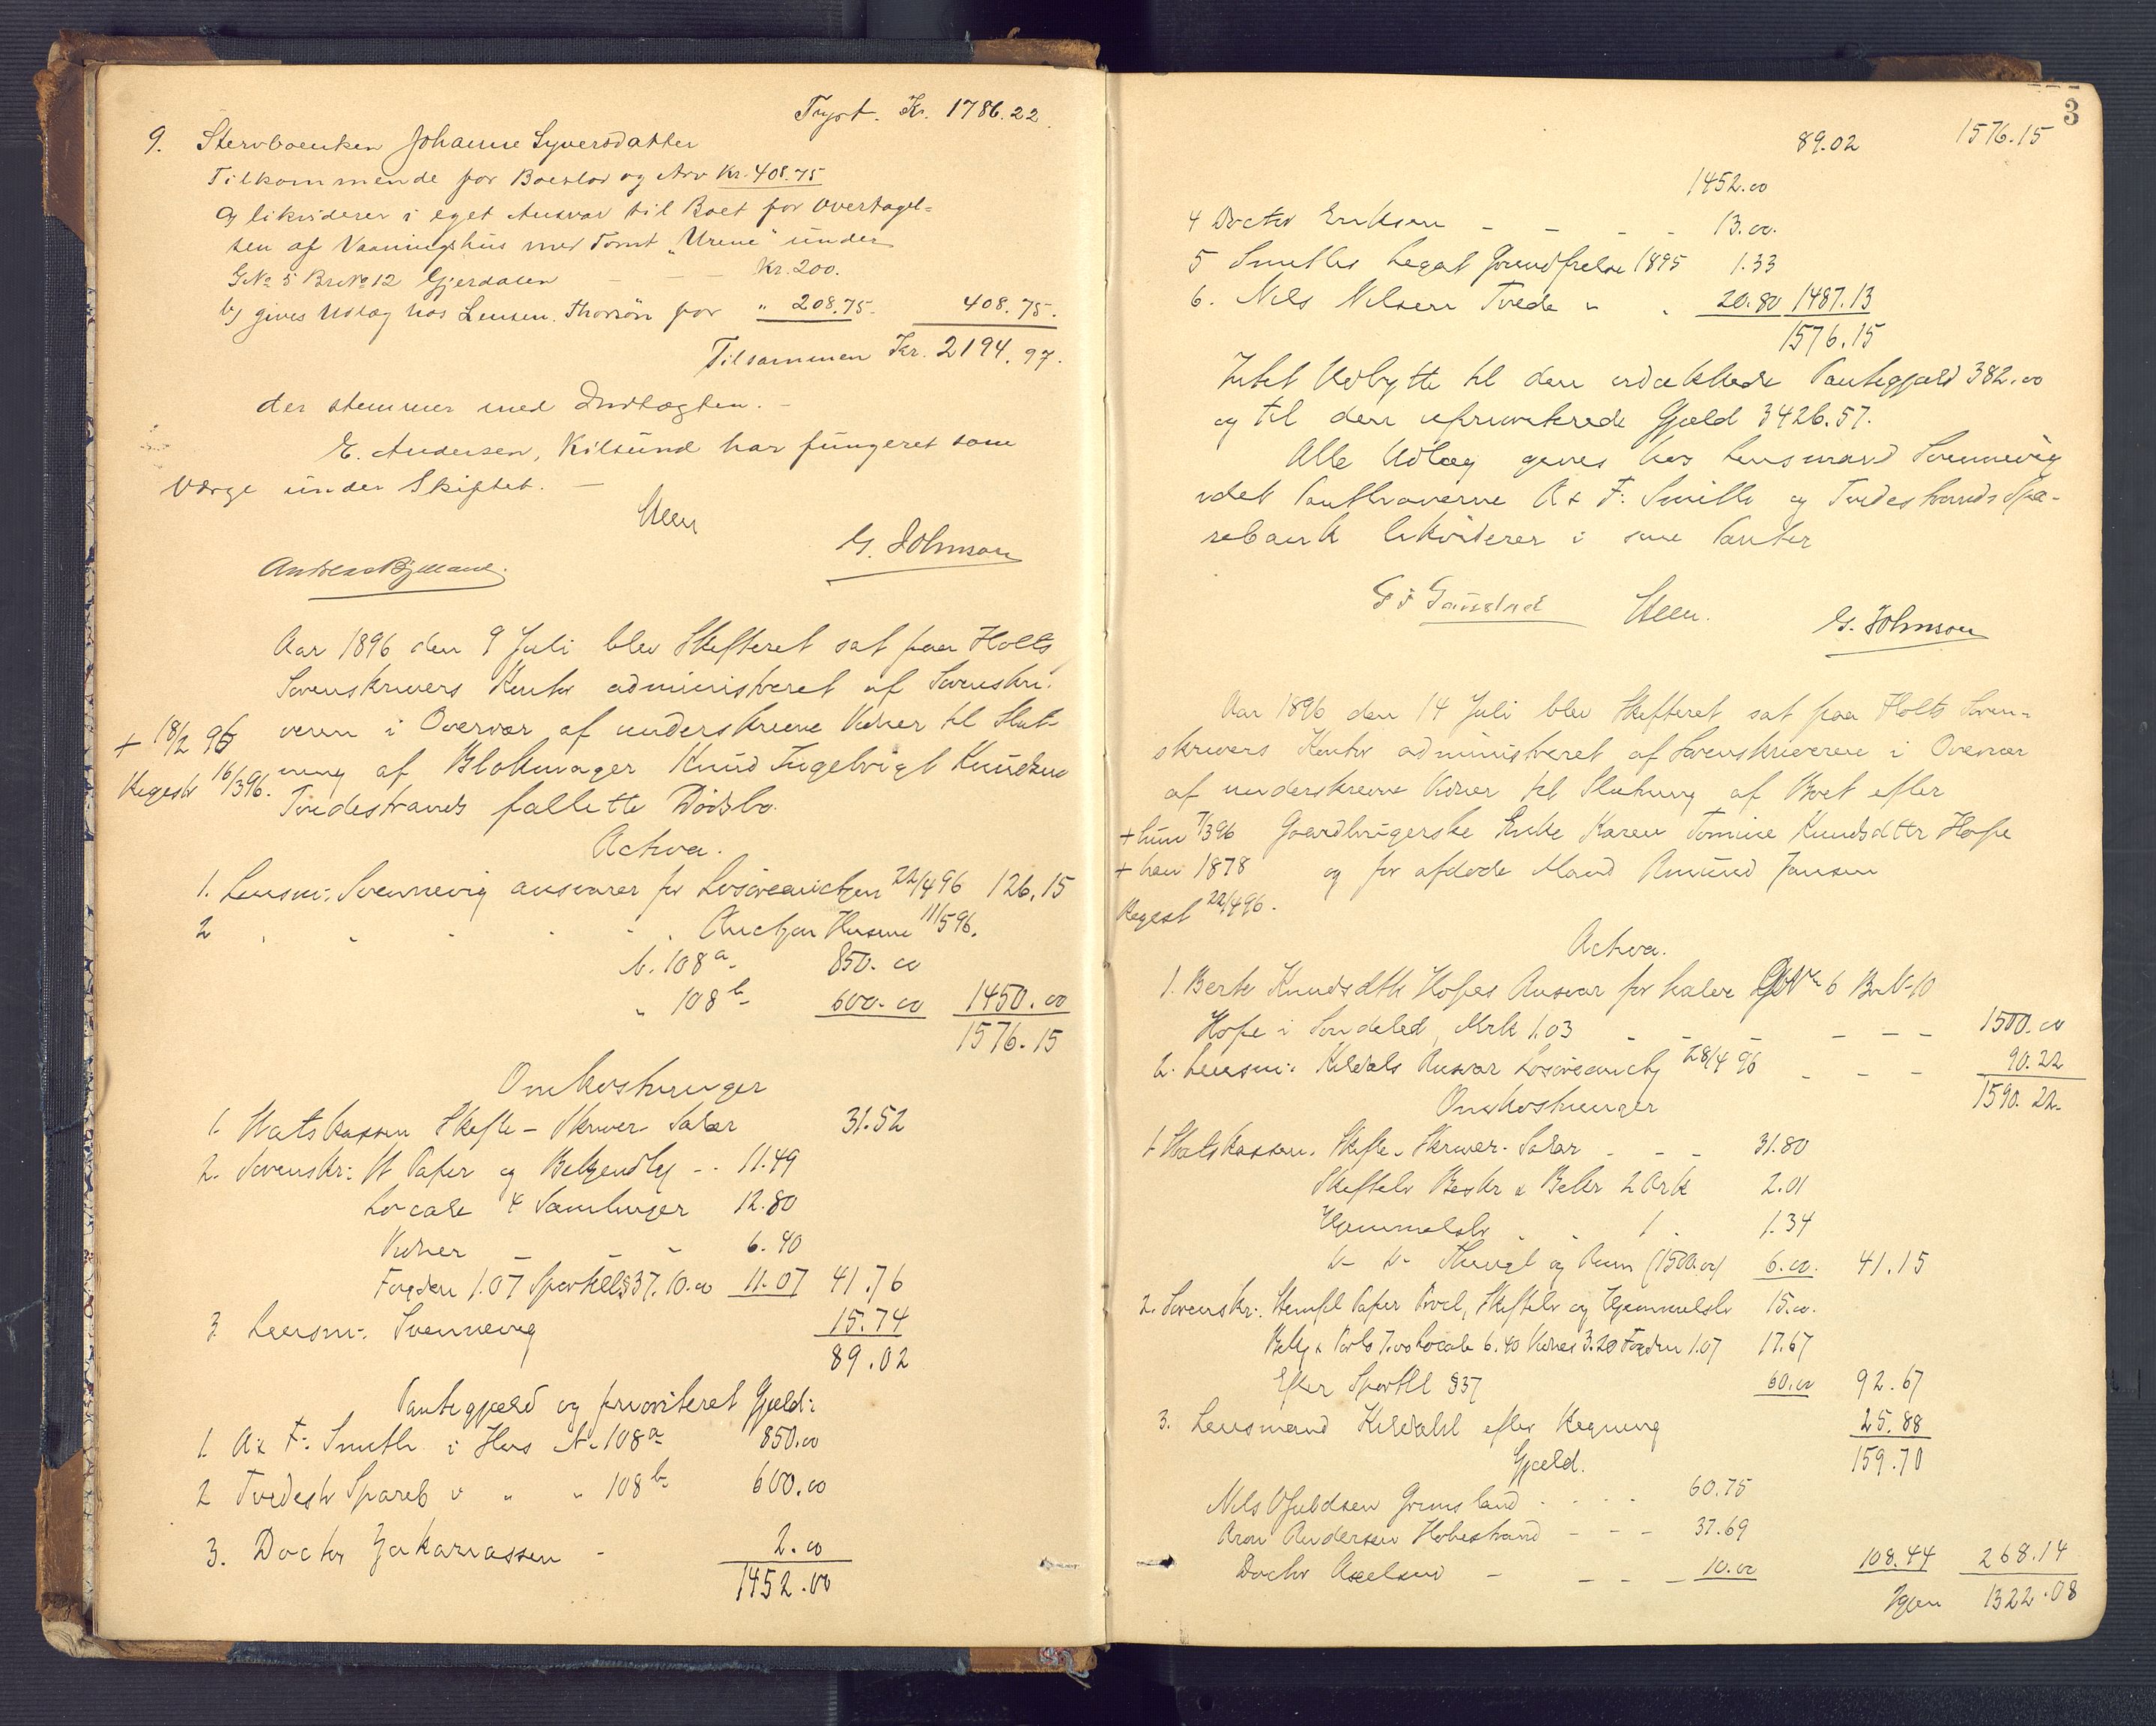 Trqst. Kr. 1786.22
9. Stervboenken Johanne Syversdatter
Tilkommende for Boeslod og Arv Kr. 408.75
a) likviderer i eget Ansvar til Boet for Overtagel=
sen af Vaaningshus med Tomt "Urene" under
GNo 5 BrNo 12 Gjerdalen — — Kr. 200.
b) gives Udlæg hos Lensm. Thorsön for " 208.75. 408.75.
Tilsammen Kr. 2194.97.
der stemmer med Indtægten. -
E. Andersen, Kilsund har fungeret som
Værge under Skiftet. —
Steen
G. Johnson
Aar 1896 den 9 Juli blev Skifteret sat paa Holts
Sorenskrivers Kontor administreret af Sorenskri-
veren i Overvær af underskrevne Vidner til Slut-
+ 18/2 96
ning af Blokmager Knud Ingebrigt Knudsen
Registr 16/3 96.
Tvedestrands fallitte Dødsbo.
Activa.
1. Lensm: Svennevig ansvarer for Løsøreauctjon 22/4 96 126.15
2 " " " " " Auctjon Husene 11/5 96.
N. 108 a- 850.00
" 108 b- 600.00 1450.00
1576.15
Omkostninger
1. Statskassen Skifte - Skriver Salær 31.52
2. Sorenskr: St Papir og Bekjendtg - - 11.49
Locale 4 Samlinger 12.80
Vidner - - - 6.40
Fogden 1.07 Sportel §37. 10.00 11.07 41.76
3 Lensm: Svennevig 15.74
89.02
Pantegjæld og prioriteret Gjæld:
1. A & F. Smith i Hus N. 108 a- 850.00
2 Tvedestr Spareb i " " 108 b- 600.00
3. Doctor Zakariassen - 2.00
1452.00
3
89.02 1576.15
1452.00
4 Doctor Eriksen - - - - 13.00.
5 Smiths Legat Grundfrelse 1895 1.33
6. Nils Nilsen Tvede " " 20.80 1487.13
1576.15
Intet Udbytte til den udækkede Pantegjæld 382.00
og til den uprioriterede Gjæld 3426.57.
Alle Udlæg gives hos Lensmand Svennevig
idet Panthaverne A & F. Smith og Tvedestrands Spa-
rebank likviderer i sine Panter
Steen.
G. Johnson
Aar 1896 den 14 Juli blev Skifteret sat paa Holts Soren-
skrivers Kontor administreret af Sorenskriveren i Overvær
af underskrevne Vidner til Slutning af Boet efter
+ hun 7/3 96 Gaardbrugerske Enke Karen Tomine Knudsdtr Hope
+ han 1878 og før afdøde Mand Amund Jansen
Regist 22/4 96.
Activa.
1. Berte Knudsdtr Hopes Ansvar for halve GNo 6 BrN. 10
Hope i Sondeled, Mrk 1.03 - - - - - 1500.00
2. Lensm: Kildals Ansvar Løsøreauctj 28/4 96 - - - 90.22
1590.22.
Omkostninger
1 Statskassen. Skifte - Skriver - Salær - - - 31.80
Skiftebr Beskr & Bekr 2 Ark 2.01
Hjemmelsbr " " 1 " 1.34
D- D- Thingl og Anm (1500.00) 6.00. 41.15
2. Sorenskr: Stempl Papir Procl, Skiftebr og Hjemmelsbr 15.00.
Bekj & Porto 7.00 Locale 6.40 Vidner 3.20 Fogden 1.07 17.67
Efter Sportel §37 60.00 92.67
3. Lensmand Kildahl efter Regning 25.88
159.70
Gjæld.
Nils Grimsland . . . . 60.75
Aron Andersen Hobestrand - - - 37.69
Doctor Axelsen - - - - 10.00 108.44 268.14
Igjen 1322.08